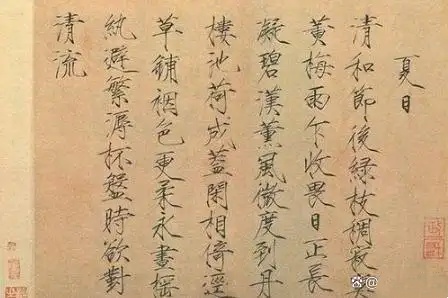 夏日
清和節後綠枝稠寂
黃梅雨乍收畏日正長
凝碧漢薰風微度到丹
樓池荷成蓋閑相倚逕
草鋪裀色更柔永晝搖
紈避繁溽杯盤時欲對
清流